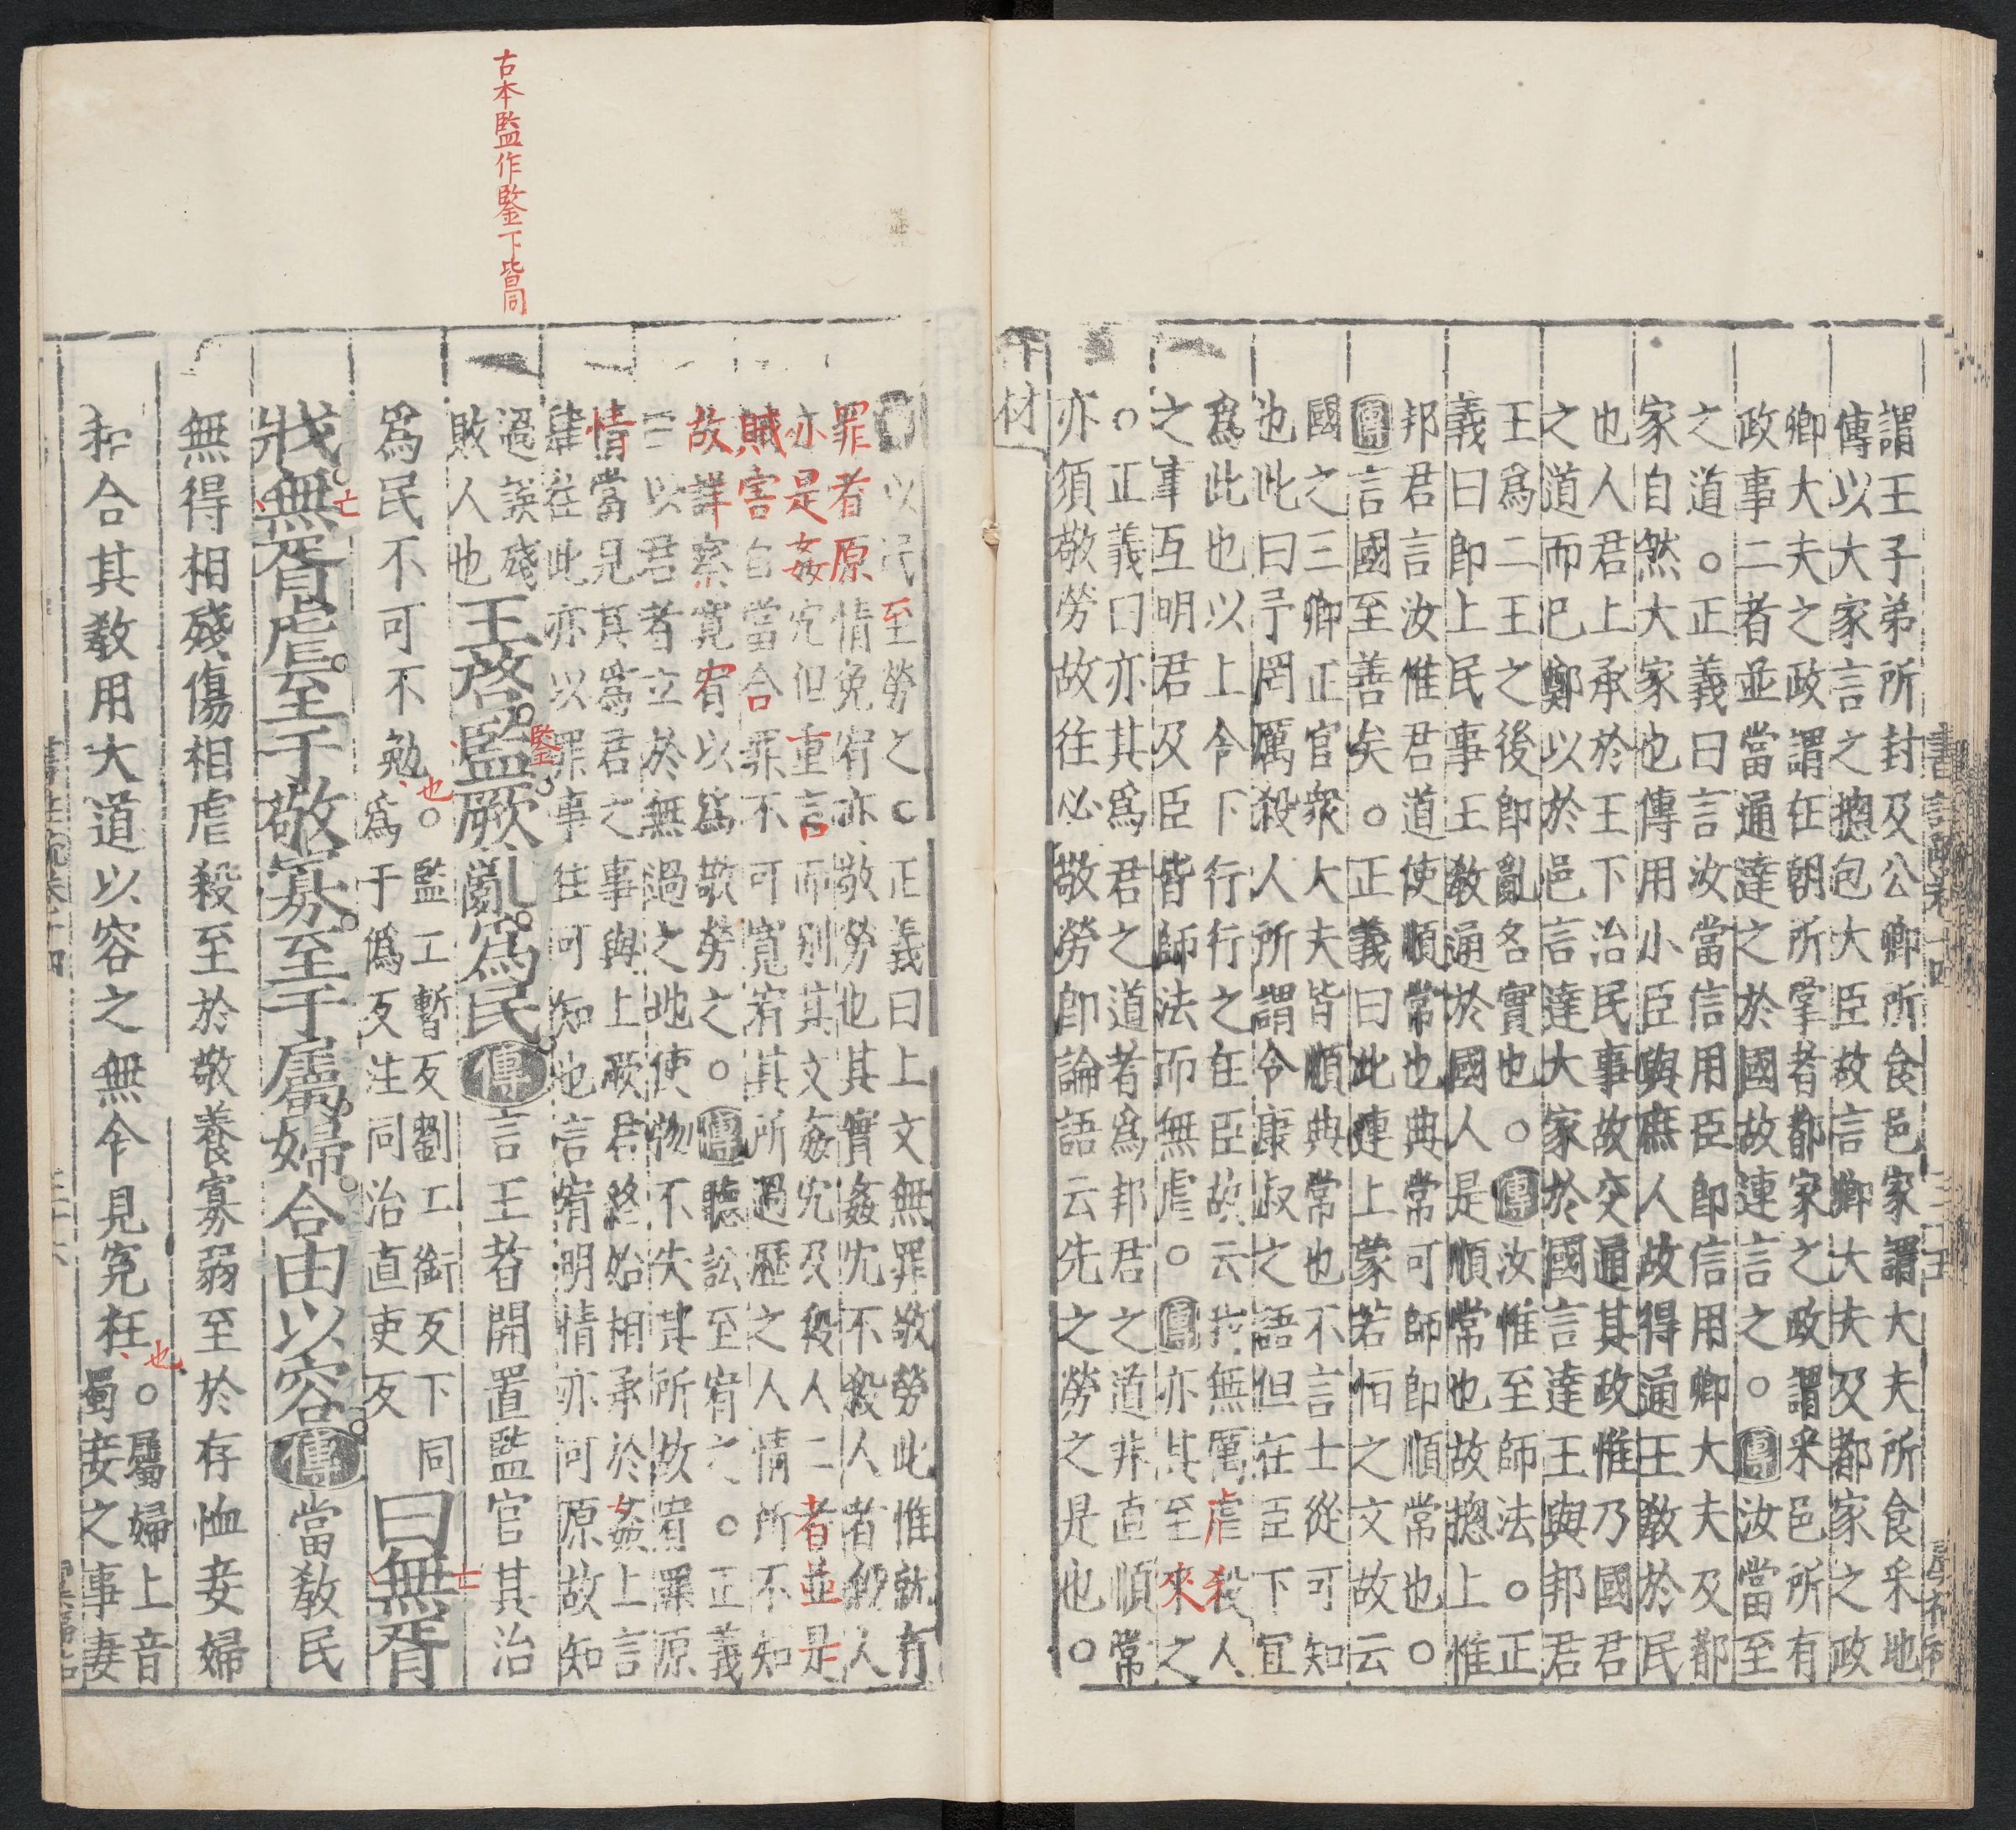 謂王子弟所封及公卿所食邑家謂大夫所食采地
傳以大家言之緫包大臣故言卿大夫及都家之政
卿大夫之政謂在朝所掌者都家之政謂采邑所有
政事二者並當通達之於國故連言之○傳汝當至
之道○正義曰言汝當信用臣即信用卿大夫及都
家自然大家也傳用小臣與庶人故得通王敎於民
也人君上承於王下治民事故交通其政惟乃國君
之道而巳鄭以於邑言達大家於國言達王與邦君
王爲二王之後即亂名實也○傳汝惟至師法○正
義曰即上民事王敎通於國人是順常也故緫上惟
邦君言汝惟君道使順常也典常可師即順常也○
傳言國至善矣○正義曰此連上蒙若恒之文故云
國之三卿正官衆大夫皆順典常也不言士從可知
也此曰予罔厲殺人所謂令康叔之語但在臣下冝
爲此也以上令下行行之在臣故云我無厲虐殺人
之事互明君及臣皆師法而無虐○傳亦其至來之
○正義曰亦其爲君之道者爲邦君之道非直順常
亦須敬勞故往必敬勞即論語云先之勞之是也○
材
以民至勞之○正義曰上文無罪敬勞此惟就有
罪者原情免宥亦敬勞也其實姦宄不殺人者殺人
亦是姦宄但重言而別其文姦宄及殺人二者並是
賊害自當合罪不可寛宥其所過歷之人情所不知
故詳察寛宥以爲敬勞之○傳聽訟至宥之○正義
曰以君者立於無過之地使物不失其所故宥罪原
情當見其爲君之事與上厥君終始相承於姦上言
肆往此亦以罪事往可知也言宥明情亦可原故知
過誤殘
敗人也王啓監厥亂爲民傳言王者開置監官其治
爲民不可不勉也○監工暫反劉工銜反下同
爲于僞反注同治直吏反曰無胥
戕無胥虐至于敬寡至于屬婦合由以容傳當敎民
無得相殘傷相虐殺至於敬養寡弱至於存恤妾婦
和合其敎用大道以容之無令見寃枉也○屬婦上音
蜀妾之事妻
古本監作鍳下皆同
鍳
亡
亡